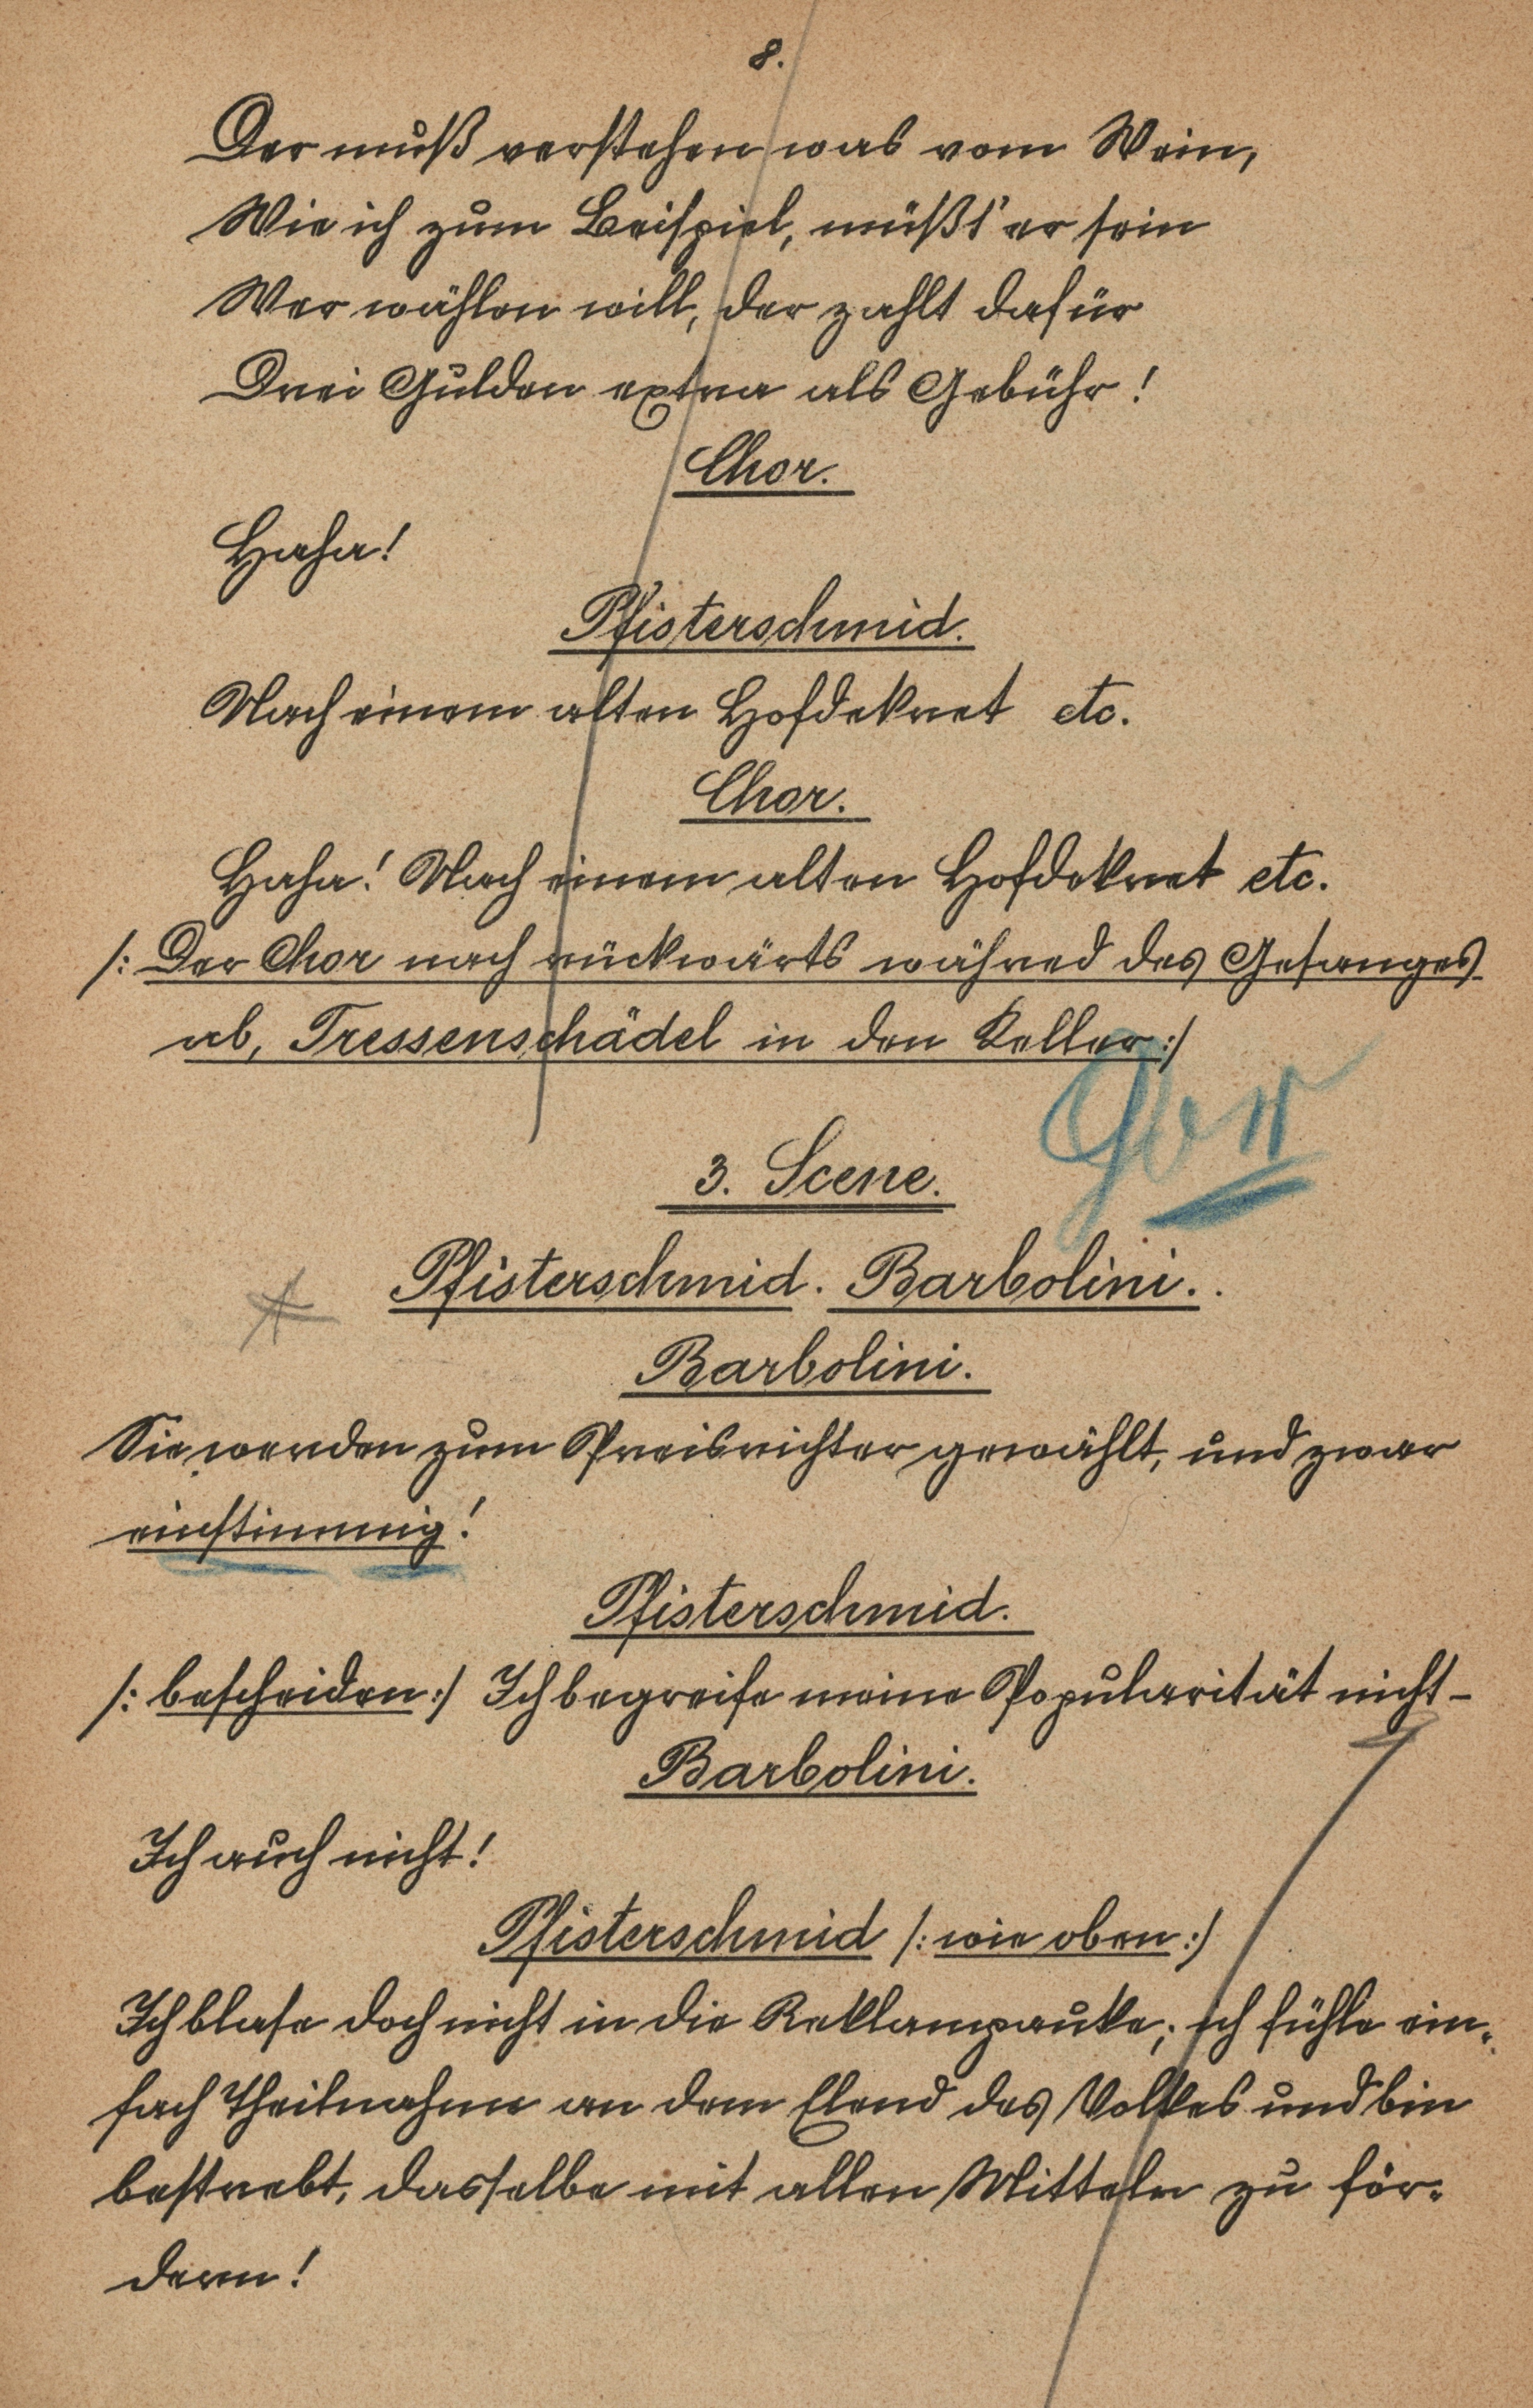 8.
Der muß verstehen was vom Wein,
Wie ich zum Beispiel, müßt' er sein
Wer wählen will, der zahlt dafür
Drei Gulden extra als Gebühr!
Chor.
Haha!
Pfisterschmid.
Nach einem alten Hofdekret etc.
Chor.
Haha! Nach einem alten Hofdekret etc.
/: Der Chor nach rückwärts währed des Gesanges
ab, Tressenschädel in den Keller :/
3. Scene.
Pfisterschmid. Barbolini..
Barbolini.
Sie werden zum Preisrichter gewählt, und zwar
einstimmig!
Pfisterschmid.
/: bescheiden :/ Ich begreife meine Popularität nicht –
Barbolini.
Ich auch nicht!
Pfisterschmid /: wie oben :/
Ich blase doch nicht in die Reklampauke; ich fühle ein-
fach Theilnahme an dem Elend des Volkes und bin
bestrebt, dasselbe mit allen Mitteln zu för-
dern!